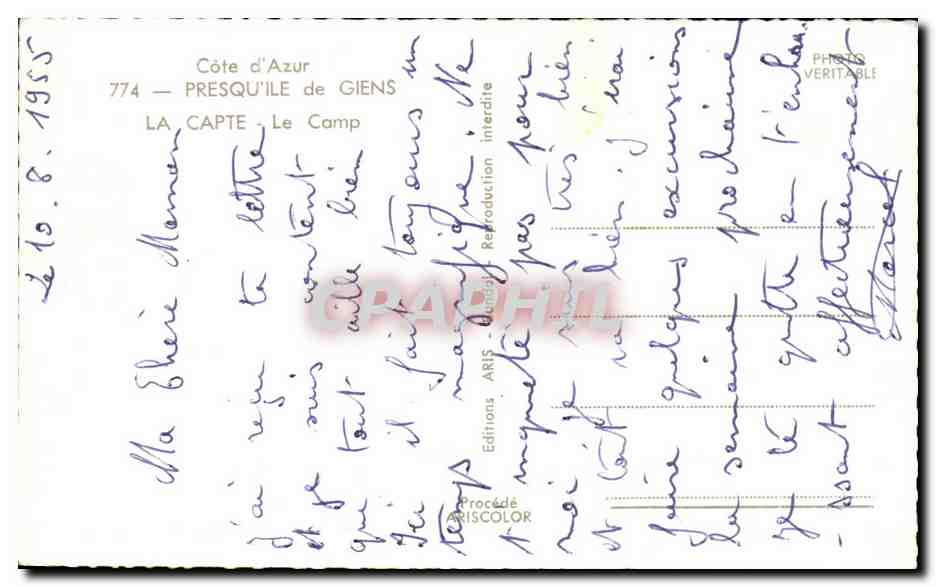 Côte d'Azur
774 — PRESQU'ILE de GIENS
LA CAPTE - Le Camp
PHOTO
VERITABLE
Editions ARIS - Bandol - Reproduction interdite
Procédé
ARISCOLOR
CPARHIL
Le 10.8.1955
Ma Chérie Maman
J'ai reçu ta lettre
et je suis content
que tout aille bien
Ici il fait toujours un
temps magnifique. Ne
t'inquiète pas pour
moi je suis très bien
et tout va bien. J'irai
faire quelques excursions
la semaine prochaine
je te quitte en t'embra
-ssant affectueusement
Marcel